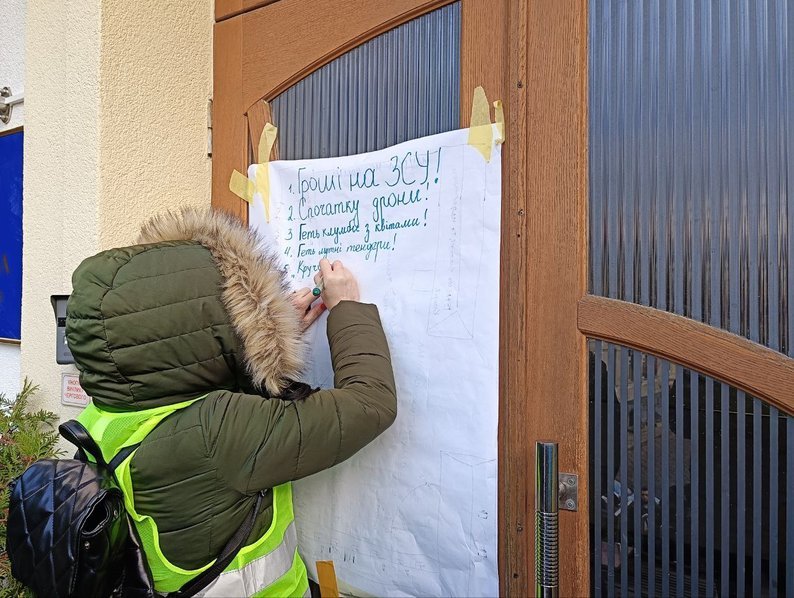 1. Гроші на ЗСУ!
2. Спочатку дрони!
3 Геть клумби з квітами!
4. Геть мутні тендери!
5.